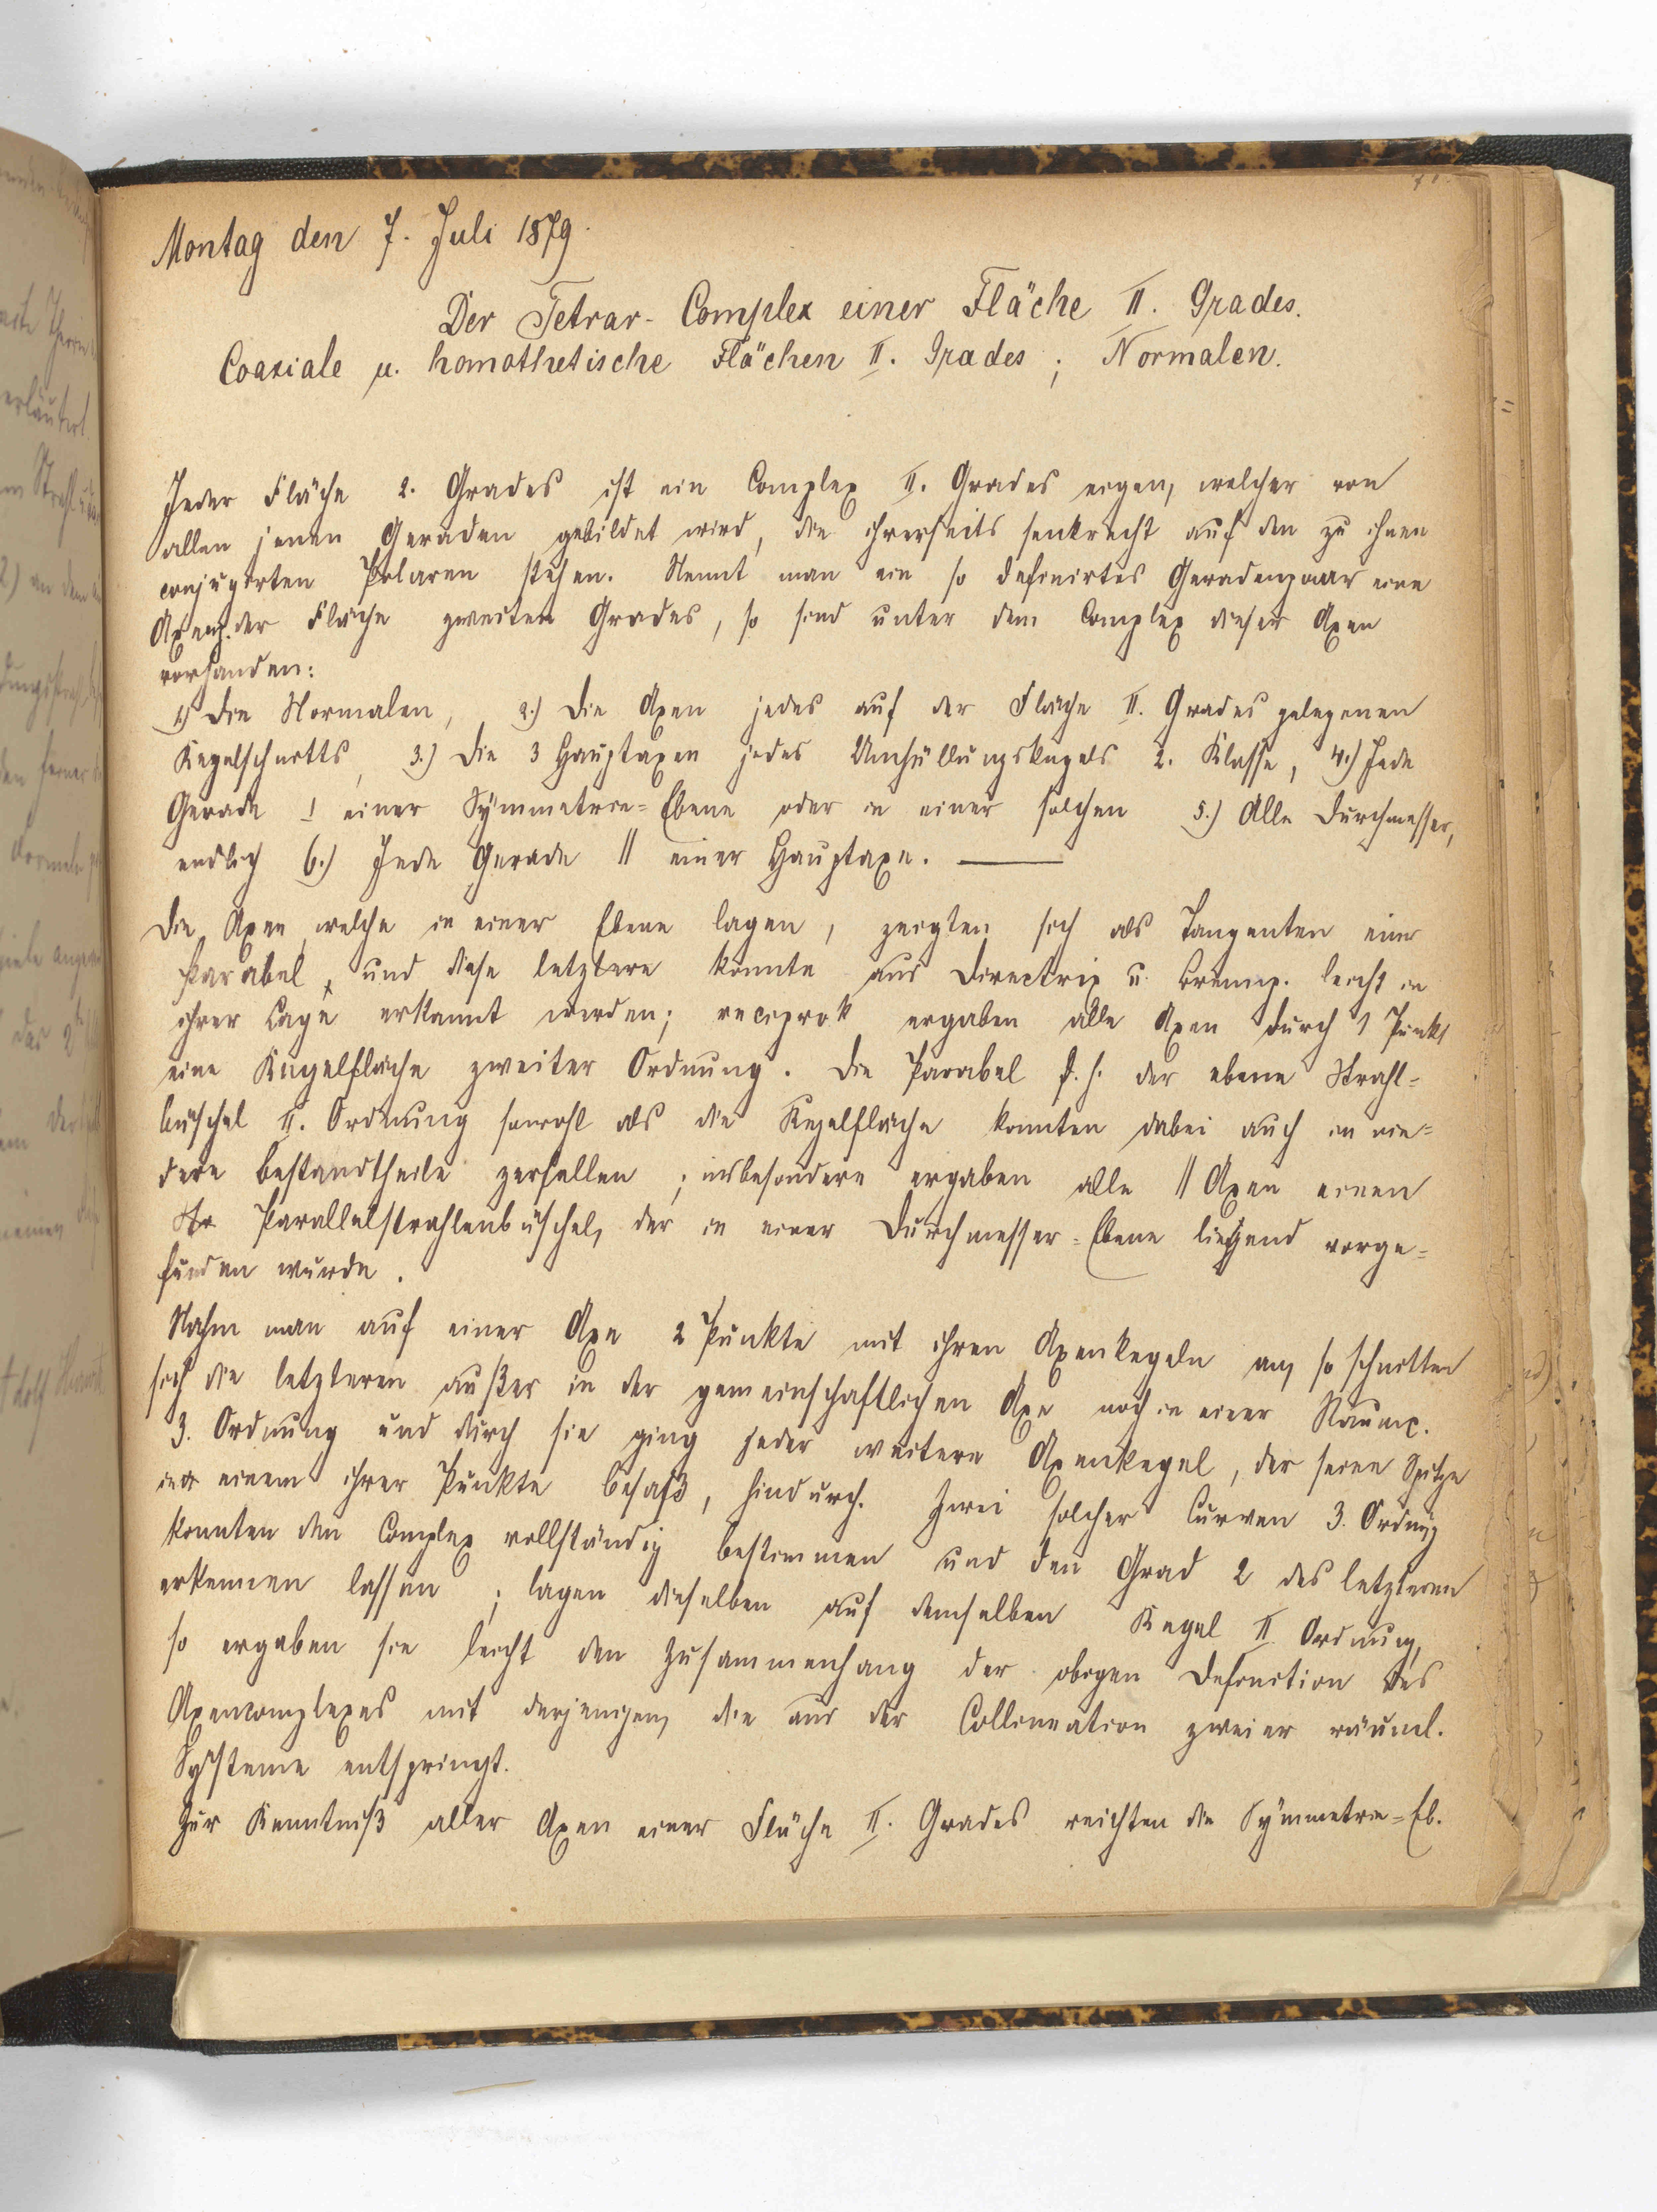 Montag den 7. Juli 1879.
Der Tetrar-Complex einer Fläche II. Grades.
Coaxiale u. homothetische Flächen II. Grades; Normalen.
Jeder Fläche 2. Grades ist ein Complex II. Grades eigen, welcher von
allen jenen Geraden gebildet wird, die ihrerseits senkrecht auf den zu ihnen
conjugirten Polaren stehen. Nennt man ein so definirtes Geradenpaar eine
der Fläche zweiten Grades, so sind unter dem Complex dieser Axen
vorhanden:
1.) Die Normalen, 2.) Die Axen jedes auf der Fläche II. Grades gelegenen
Kegelschnitts, 3.) Die 3 Hauptaxen jedes Umhüllungskegels 2. Klasse, 4.) Jede
Gerade ⊥ einer Symmetrie=Ebene oder in einer solchen 5.) Alle Durchmesser,
endlich 6.) Jede Gerade || einer Hauptaxe. —
Die Axen, welche in einer Ebene lagen, zeigten sich als Tangenten einer
Parabel, und diese letztere konnte aus Directrix u. Brennp. leicht in
ihrer Lage erkannt werden; reciprok ergaben alle Axen durch 1 Punkt
eine Kegelfläche zweiter Ordnung. Die Parabel d. h. der ebene Strahl=
büschel II. Ordnung sowohl als die Kegelfläche konnten dabei auch in nie=
dere Bestandtheile zerfallen; insbesondere ergaben alle || Axen einen
Parallelstrahlenbüschel, der in einer Durchmesser=Ebene liegend vorge=
funden wurde.
Nahm man auf einer Axe 2 Punkte mit ihren Axenkegeln an, so schnitten
sich die letzteren außer in der gemeinschaftlichen Axe noch in einer Raumc.
3. Ordnung und durch sie ging jeder weitere Axenkegel, der seine Spitze
in einem ihrer Punkte besaß, hindurch. Zwei solcher Curven 3. Ordnung
konnten den Complex vollständig bestimmen und den Grad 2 des letzteren
erkennen lassen; lagen dieselben auf demselben Kegel II Ordnung,
so ergaben sie leicht den Zusammenhang der obigen Definition des
Axencomplexes mit derjenigen, die aus der Collineation zweier räuml.
Systeme entspringt.
Zur Kenntniß aller Axen einer Fläche II. Grades reichten die Symmetrie=Eb.